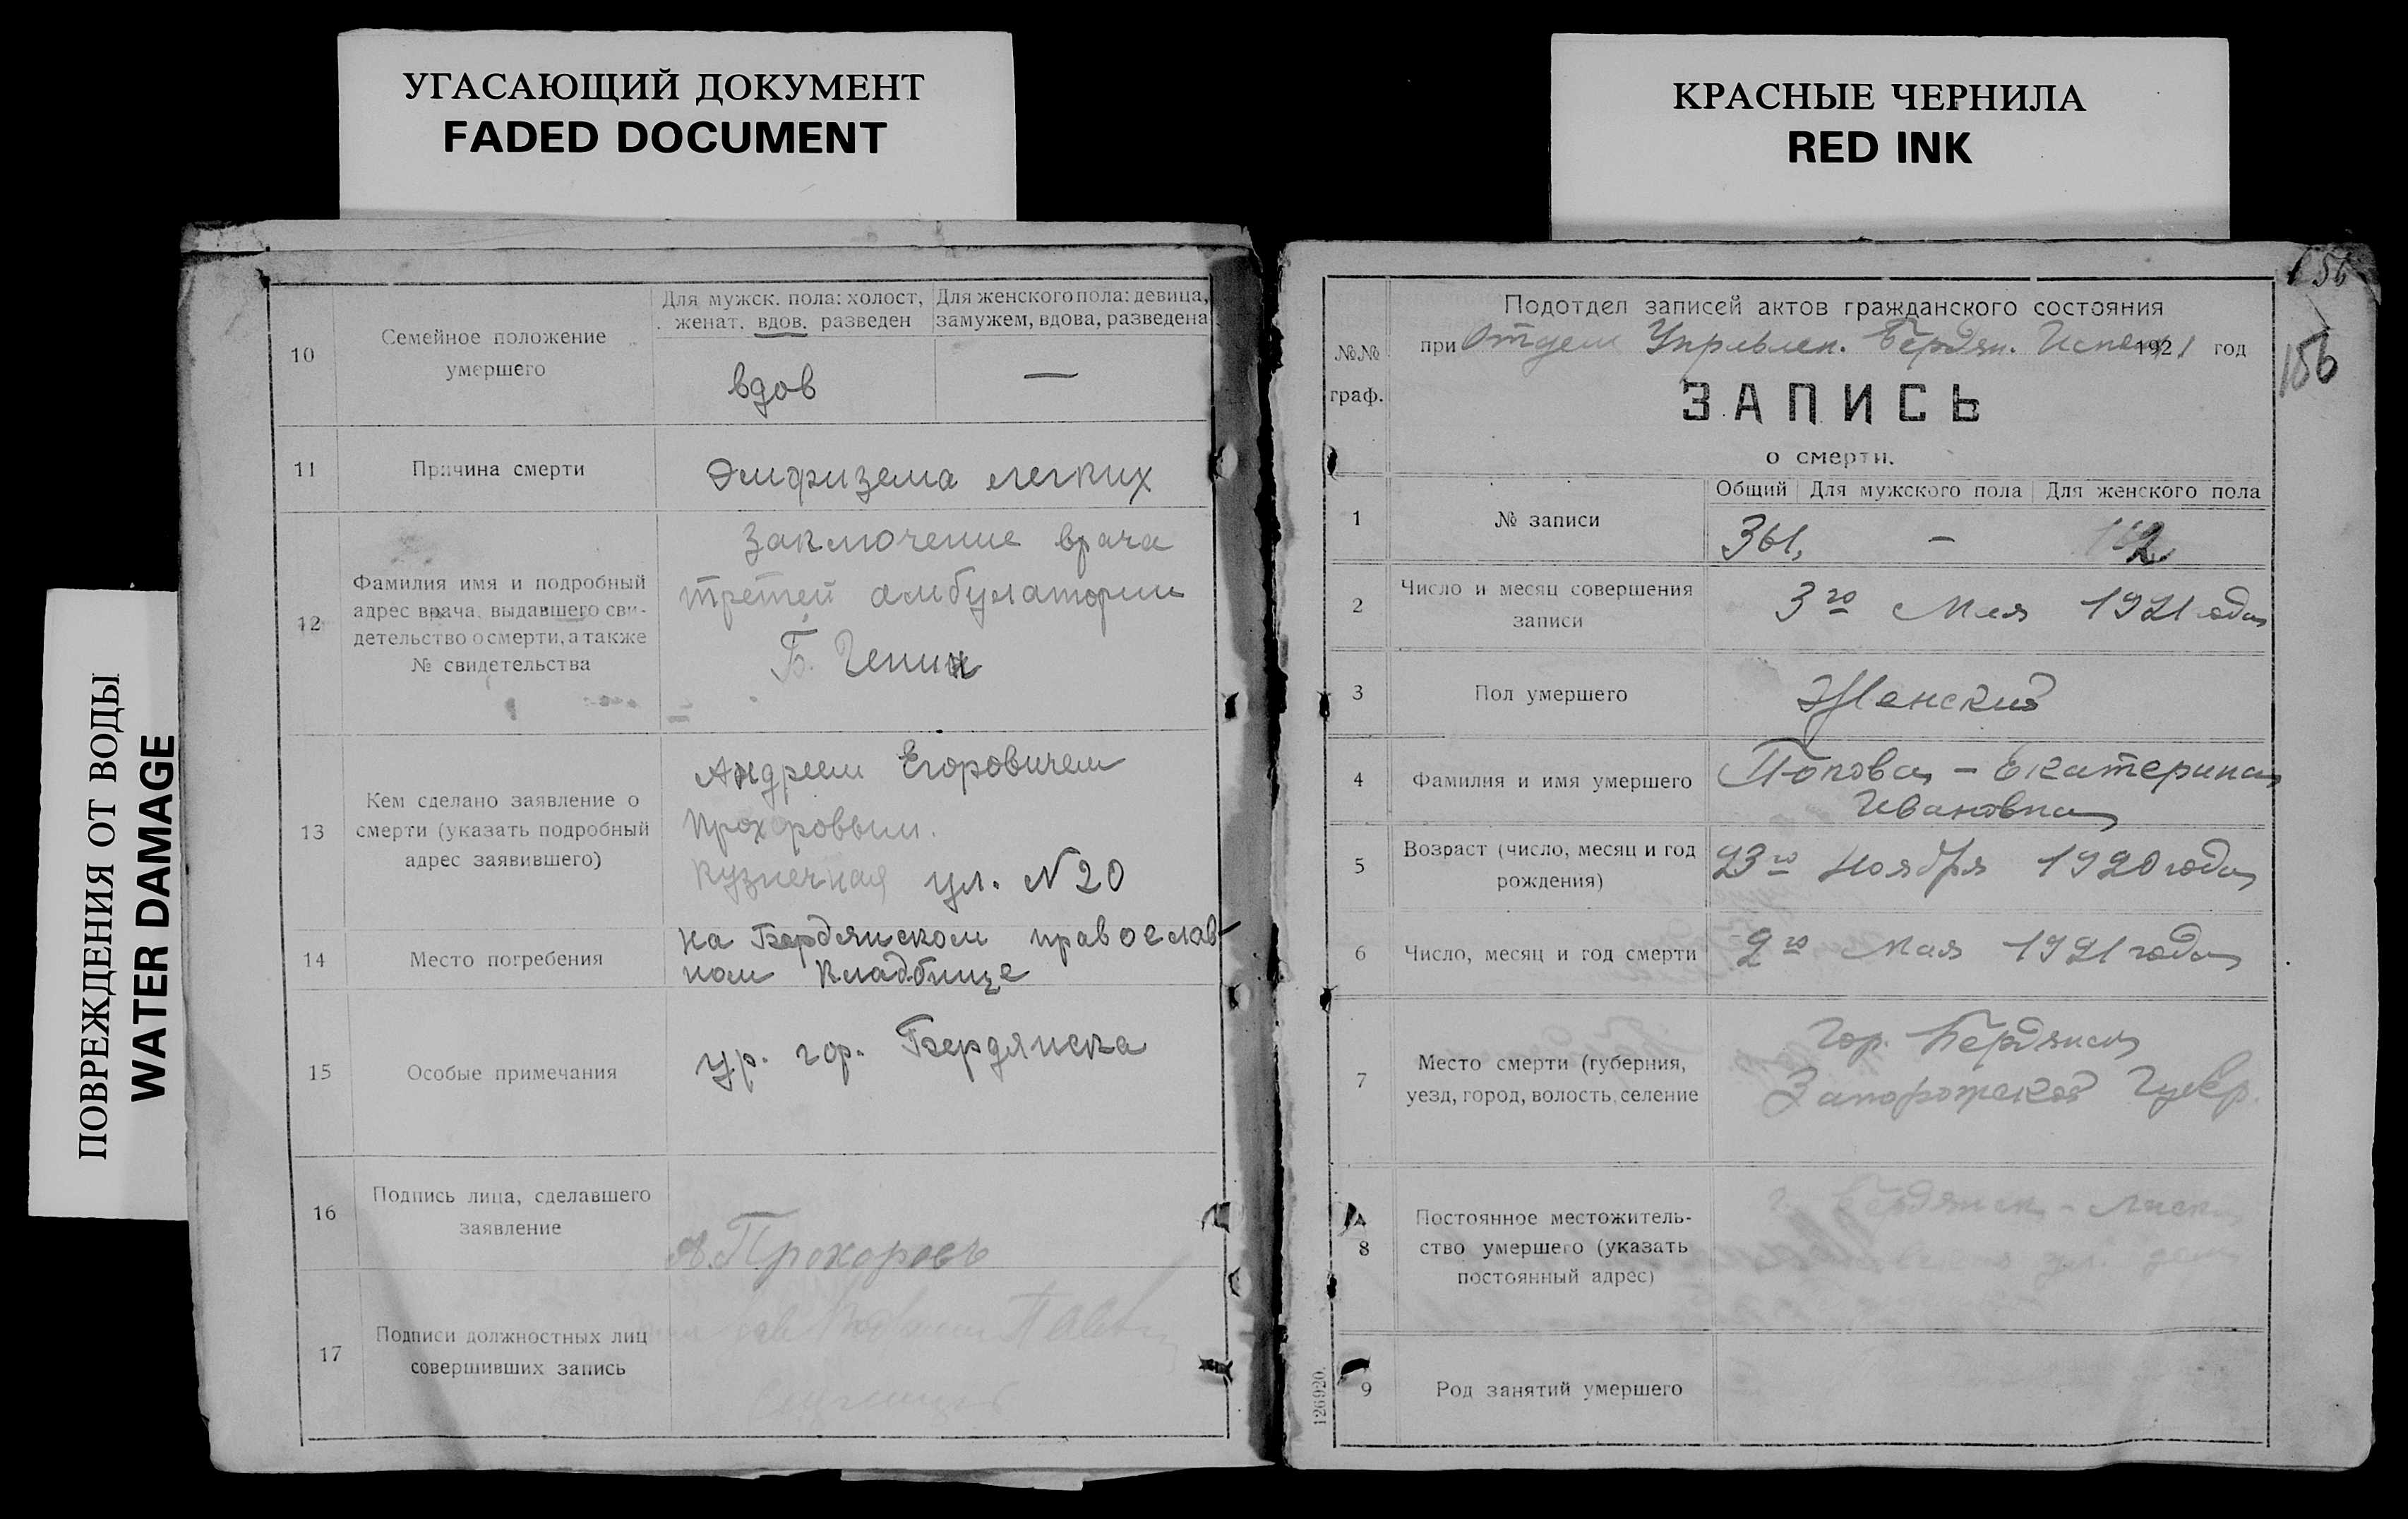 УГАСАЮЩИЙ ДОКУМЕНТ
FADED DOCUMENT
КРАСНЫЕ ЧЕРНИЛА
RED INK
ПОВРЕЖДЕНИЯ ОТ ВОДЫ
WATER DAMAGE
10
Семейное положение
умершего
Для мужск. пола: холост,
женат, вдов, разведен
Для женского пола: девица,
замужем, вдова, разведена
вдов
—
11
Причина смерти
Эмфизема легких
12
Фамилия имя и подробный
адрес врача, выдавшего сви-
детельство о смерти, а также
№ свидетельства
Заключение врача
третей амбулатории
Б. Генин
13
Кем сделано заявление о
смерти (указать подробный
адрес заявившего)
Андреем Егоровичем
Прохоровым.
Кузнечная ул. N 20
14
Место погребения
на Бердянском православ-
ном кладбище
15
Особые примечания
ур. гор. Бердянска
16
Подпись лица, сделавшего
заявление
А. Прохоровъ
17
Подписи должностных лиц
совершивших запись
156
156
№№
граф.
Подотдел записей актов гражданского состояния
при Отделе Управлен. Бердян. 1921 год
ЗАПИСЬ
о смерти.
1
№ записи
Общий
Для мужского пола
Для женского пола
361,
—
2
Число и месяц совершения
записи
3го Мая 1921 года
3
Пол умершего
Женский
4
Фамилия и имя умершего
Попова – Екатерина
Ивановна
5
Возраст (число, месяц и год
рождения)
23го Ноября 1920 года
6
Число, месяц и год смерти
2го мая 1921 года
7
Место смерти (губерния,
уезд, город, волость, селение
Гор. Бердянск
Запорожской Губер.
8
Постоянное местожитель-
ство умершего (указать
постоянный адрес)
г. Бердянск –
ул. дом
9
Род занятий умершего
126920.